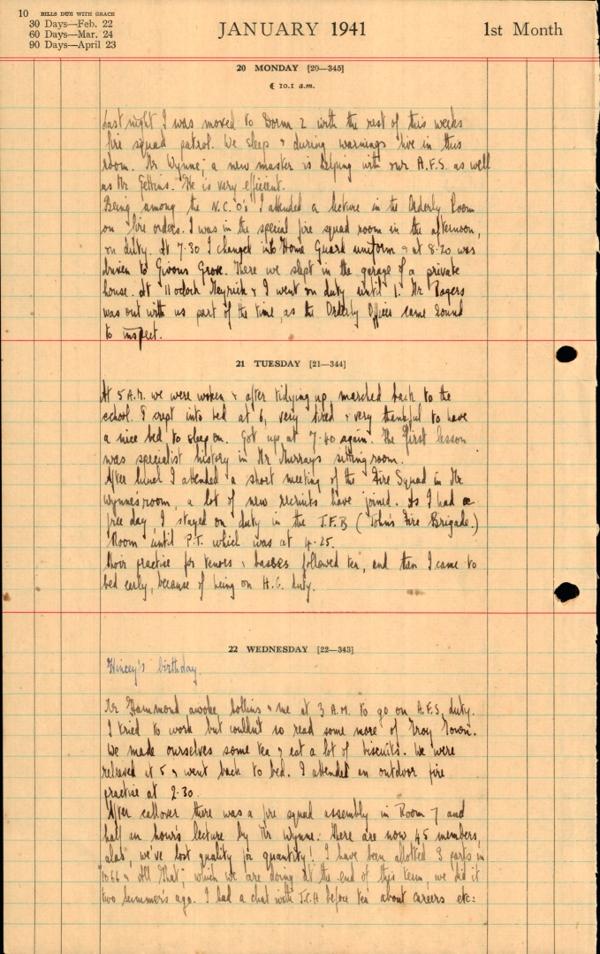 10 BILLS DUE WITH GRACE
30 Days—Feb. 22
60 Days—Mar. 24
90 Days—April 23
JANUARY 1941
1st Month
20 MONDAY [20—345]
☾ 10.1 a.m.
Last night I was moved to Dorm 2 with the rest of this weeks
fire squad patrol. We sleep & during warnings live in this
room. Mr Wynne, a new master is helping with our A.F.S. as well
as Mr Gettins. He is very efficient.
Being among the N.C.O's I attended a lecture in the Orderly Room
on fire orders. I was in the special fire squad room in the afternoon,
on duty. At 7.30 I changed into Home Guard uniform & at 8.20 was
driven to Givons Grove. There we slept in the garage of a private
house. At 11 oclock Heyrick & I went on duty until 1. Mr Rogers
was out with us part of the time, as the Orderly Officer came round
to inspect.
21 TUESDAY [21—344]
At 5 A.M. we were woken & after tidying up marched back to the
school. I crept into bed at 6, very tired & very thankful to have
a nice bed to sleep on. Got up at 7.40 again. The first lesson
was specialist history in Mr Murrays sitting room.
After lunch I attended a short meeting of the Fire Squad in Mr
Wynnes room, a lot of new recruits have joined. As I had a
free day I stayed on duty in the J.F.B (Johns Fire Brigade.)
Room until P.T. which was at 4.25.
Choir practise for tenors & basses followed tea, and then I came to
bed early, because of being on H.G. duty.
22 WEDNESDAY [22—343]
birthday
Mr Hammond awoke Collins & me at 3 A.M. to go on A.F.S. duty.
I tried to work but couldnt so read some more of Troy Town.
We made ourselves some tea & eat a lot of biscuits. We were
released at 5 & went back to bed. I attended an outdoor fire
practise at 2.30.
After callover there was a fire squad assembly in Room 7 and
half an hours lecture by Mr Wynne. There are now 45 members,
alas, we've lost quality for quantity! I have been allotted 3 parts in
"1066 & All That", which we are doing at the end of this term, we did it
two summers ago. I had a chat with before tea about careers etc: